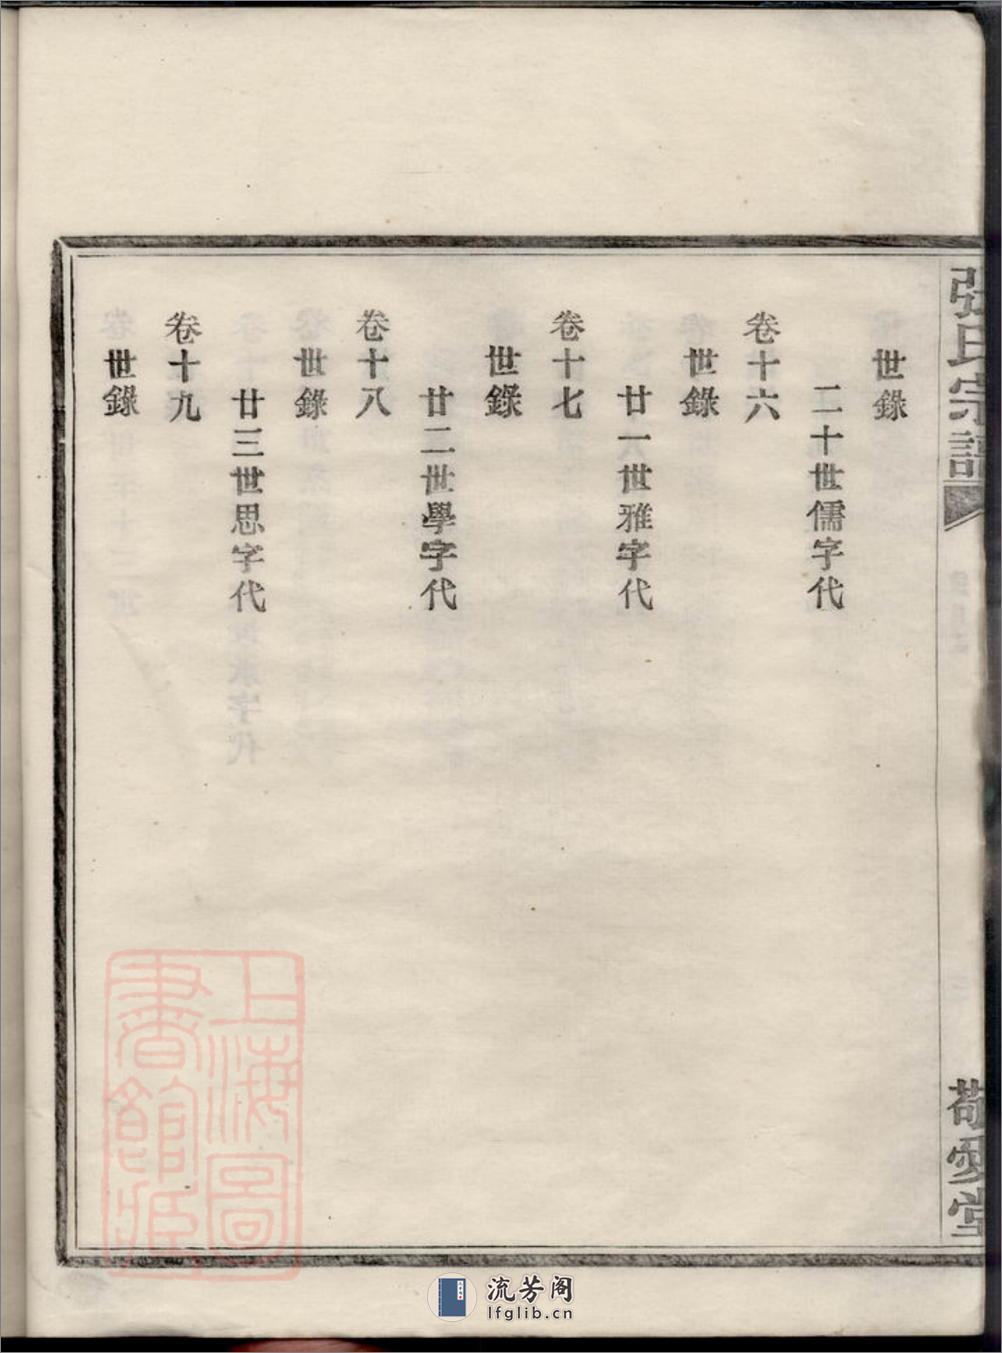 張氏宗譜
敬愛堂
世錄
二十世儒字代
卷十六
世錄
廿一世雅字代
卷十七
世錄
廿二世學字代
卷十八
世錄
廿三世思字代
卷十九
世錄
上海圖
書館藏
流芳阁
lfglib.cn